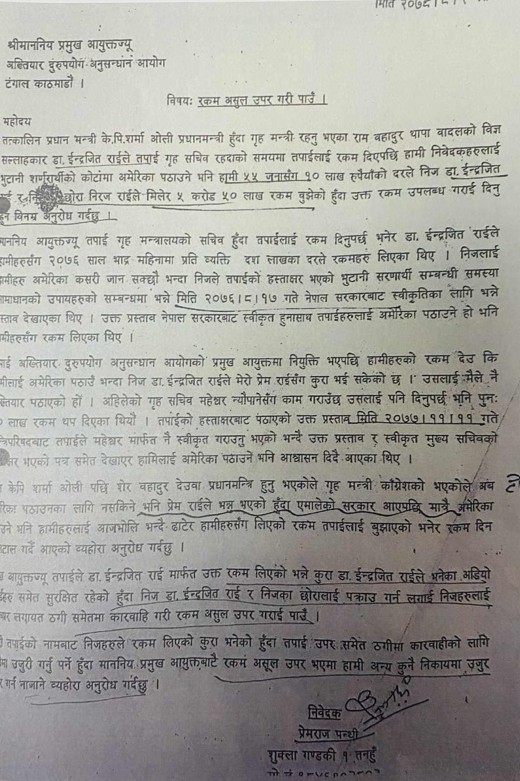 मिति २०७९।८।९
श्रीमाननिय प्रमुख आयुक्तज्यू
अख्तियार दुरुपयोग अनुसन्धान आयोग
टंगाल काठमाडौं ।
विषयः रकम असुल उपर गरी पाउँ ।
महोदय
तत्कालिन प्रधान मन्त्री के.पि.शर्मा ओली प्रधानमन्त्री हुँदा गृह मन्त्री रहनु भएका राम बहादुर थापा बादलको विज्ञ
सल्लाहकार डा. ईन्द्रजित राईले तपाई गृह सचिव रहदाको समयमा तपाईलाई रकम दिएपछि हामी निवेदकहरुलाई
भुटानी शर्णार्थीको कोटामा अमेरिका पठाउने भनि हामी ५५ जनासँग १० लाख रुपैयाँको दरले निज डा. ईन्द्रजित
छोरा निरज राईले मिलेर ५ करोड ५० लाख रकम बुझेको हुँदा उक्त रकम उपलब्ध गराई दिनु
हुन विनम्र अनुरोध गर्दछु ।
माननिय आयुक्तज्यू तपाई गृह मन्त्रालयको सचिव हुँदा तपाईलाई रकम दिनुपर्छ भनेर डा. ईन्द्रजित राईले
हामीहरुसँग २०७६ साल भाद्र महिनामा प्रति व्यक्ति दश लाखका दरले रकमहरु लिएका थिए । निजलाई
हामीहरु अमेरिका कसरी जान सक्छौ भन्दा निजले तपाईको हस्ताक्षर भएको भुटानी सरणार्थी सम्बन्धी समस्या
समाधानको उपायहरुको सम्बन्धमा भन्ने मिति २०७६।८।१७ गते नेपाल सरकारबाट स्वीकृतिका लागि भन्ने
प्रस्ताव देखाएका थिए । उक्त प्रस्ताव नेपाल सरकारबाट स्वीकृत हुनासाथ तपाईहरुलाई अमेरिका पठाउने हो भनि
हामीहरुसँग रकम लिएका थिए ।
तपाई अख्तियार दुरुपयोग अनुसन्धान आयोगको प्रमुख आयुक्तमा नियुक्ति भएपछि हामीहरुको रकम देउ कि
हामीलाई अमेरिका पठाउँ भन्दा निज डा. ईन्द्रजित राईले मेरो प्रेम राईसँग कुरा भई सकेको छ । उसलाई मैले नै
अख्तियार पठाएको हाँ । अहिलेको गृह सचिव महेश्वर न्यौपानेसँग काम गराउँछ उसलाई पनि दिनुपर्छ भनि पुनः
लाख रकम थप दिएका थियौ । तपाईको हस्ताक्षरबाट पठाएको उक्त प्रस्ताव मिति २०७७।११।११ गते
मन्त्रिपरिषदबाट तपाईले महेश्वर मार्फत नै स्वीकृत गराउनु भएको भन्दै उक्त प्रस्ताव र स्वीकृत मुख्य सचिवको
भएको पत्र समेत देखाएर हामिलाई अमेरिका पठाउने भनि आश्वासन दिदै आएका थिए ।
केपि शर्मा ओली पछि शेर बहादुर देउवा प्रधानमन्त्रि हुनु भएकोले गृह मन्त्री काँग्रेशको भएकोले अब
पठाउनका लागि नसकिने भनि प्रेम राईले भन्नु भएको हुँदा एमालेको सरकार आएपछि मात्रै अमेरिका
भनि हामीहरुलाई आजभोलि भन्दै ढाटेर हामीहरुसँग लिएको रकम तपाईलाई बुझाएको भनेर रकम दिन
गर्दै आएको व्यहोरा अनुरोध गर्दछु ।
आयुक्तज्यू तपाईले डा. ईन्द्रजित राई मार्फत उक्त रकम लिएको भन्ने कुरा डा. ईन्द्रजित राईले भनेका अडियो
समेत सुरक्षित रहेको हुँदा निज डा. ईन्द्रजित राई र निजका छोरालाई पक्राउ गर्न लगाई निजहरुलाई
लगायत ठगी समेतमा कारवाहि गरी रकम असुल उपर गराई पाउँ ।
तपाईको नामबाट निजहरुले रकम लिएको कुरा भनेको हुँदा तपाई उपर समेत ठगीमा कारवाहीको लागि
उजुरी गर्नु पर्ने हुँदा माननिय प्रमुख आयुक्तबाटै रकम असूल उपर भएमा हामी अन्य कुनै निकायमा उजुर
गर्न नजाने व्यहोरा अनुरोध गर्दछु ।
निवेदक
प्रेमराज पन्थी
शुक्ला गण्डकी १ तनहुँ